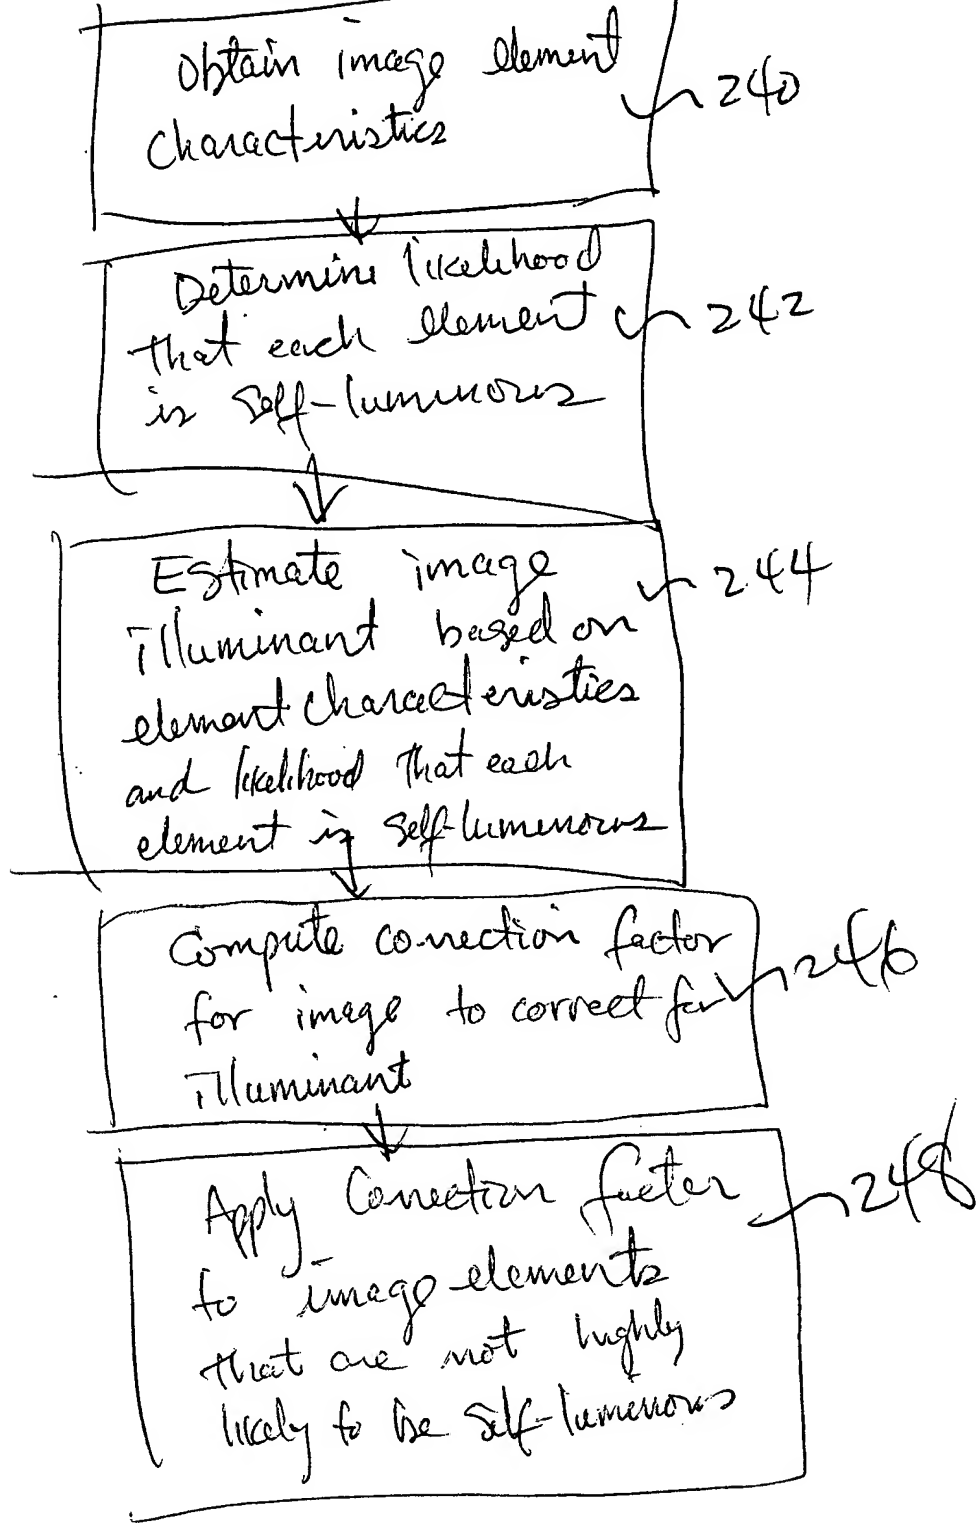 Obtain image element
characteristics
240
Determine likelihood
that each element
is self-luminous
242
Estimate image
illuminant based on
element characteristics
and likelihood that each
element is self-luminous
244
Compute correction factor
for image to correct for
illuminant
246
Apply Correction factor
to image elements
that are not highly
likely to be self-luminous
248